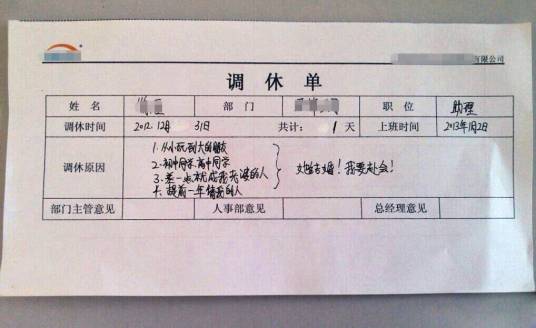 有限公司
调休单
姓名 部门 职位 助理
调休时间 2012.12月 31日 共计: 1 天 上班时间 2013年1月2日
调休原因
1. 从小玩到大的朋友
2. 初中同学、高中同学
3. 差一点就成我老婆的人
4. 提前一年情我的人
她结婚! 我要赴会!
部门主管意见 人事部意见 总经理意见